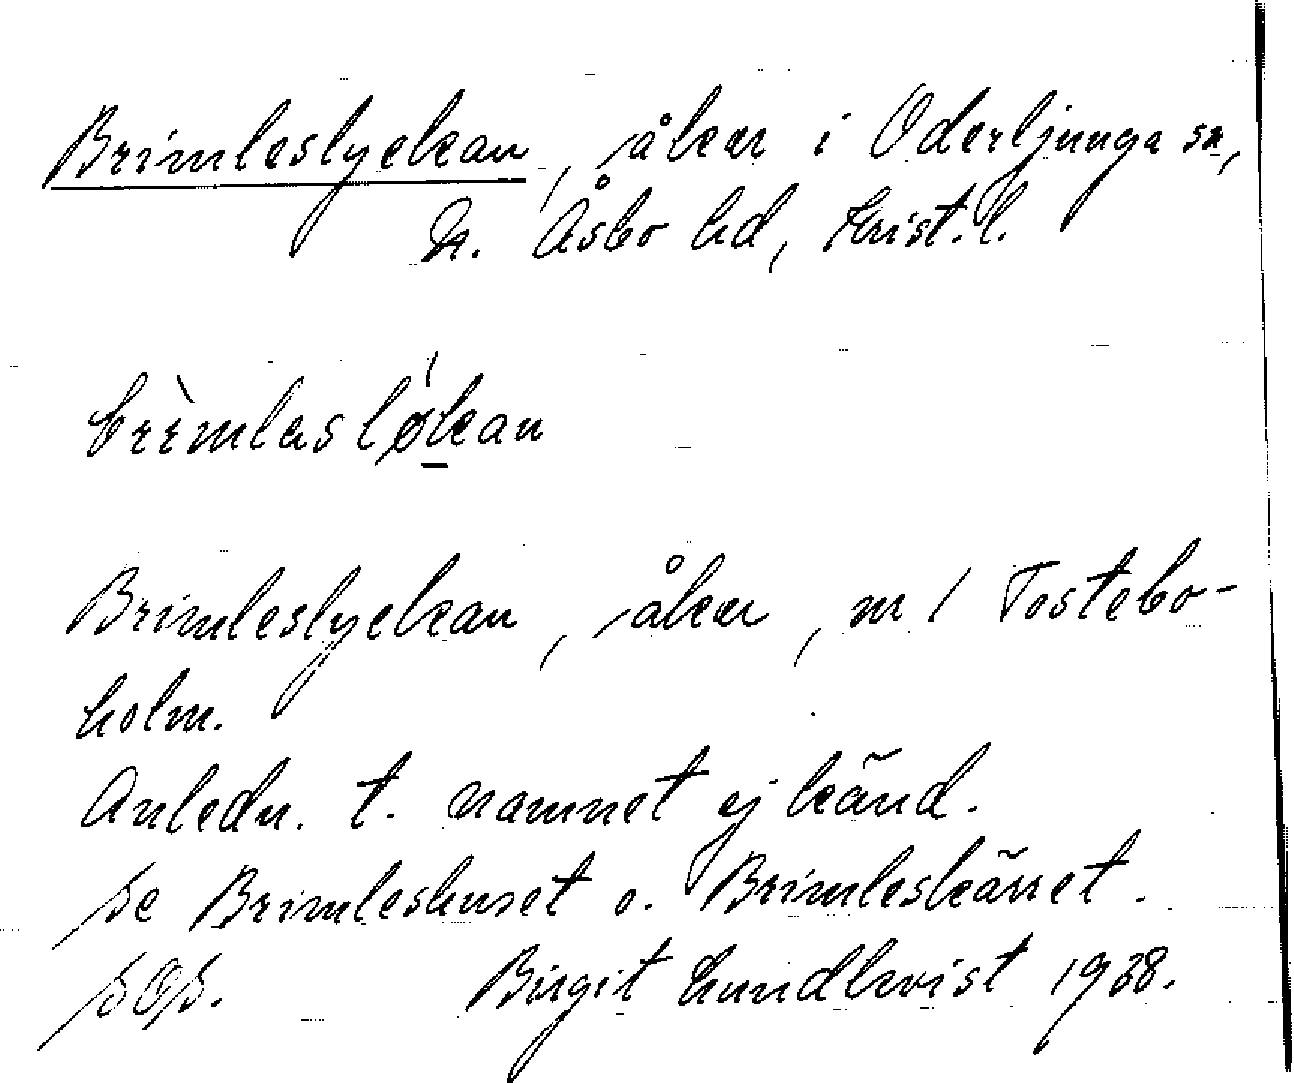 Brimleslyckan, åker i Oderljunga sn,
N. Åsbo hd, Krist. l.
brìmlasløkan
Brimleslyckan, åker, nr 1 Tostebo-
holm.
Anledn. t. namnet ej känd.
Se Brimleshuset o. Brimleskärret.
SOS. Birgit Lundkvist 1938.